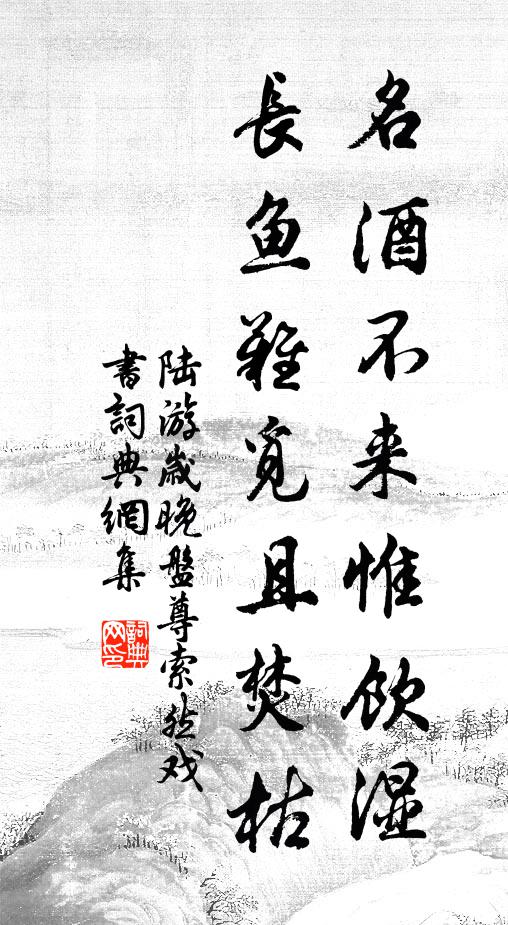 名酒不来惟饮湿
長鱼難覓且焚枯
陆游歲晚盤尊索然戏
書詞典網集
詞典
网印